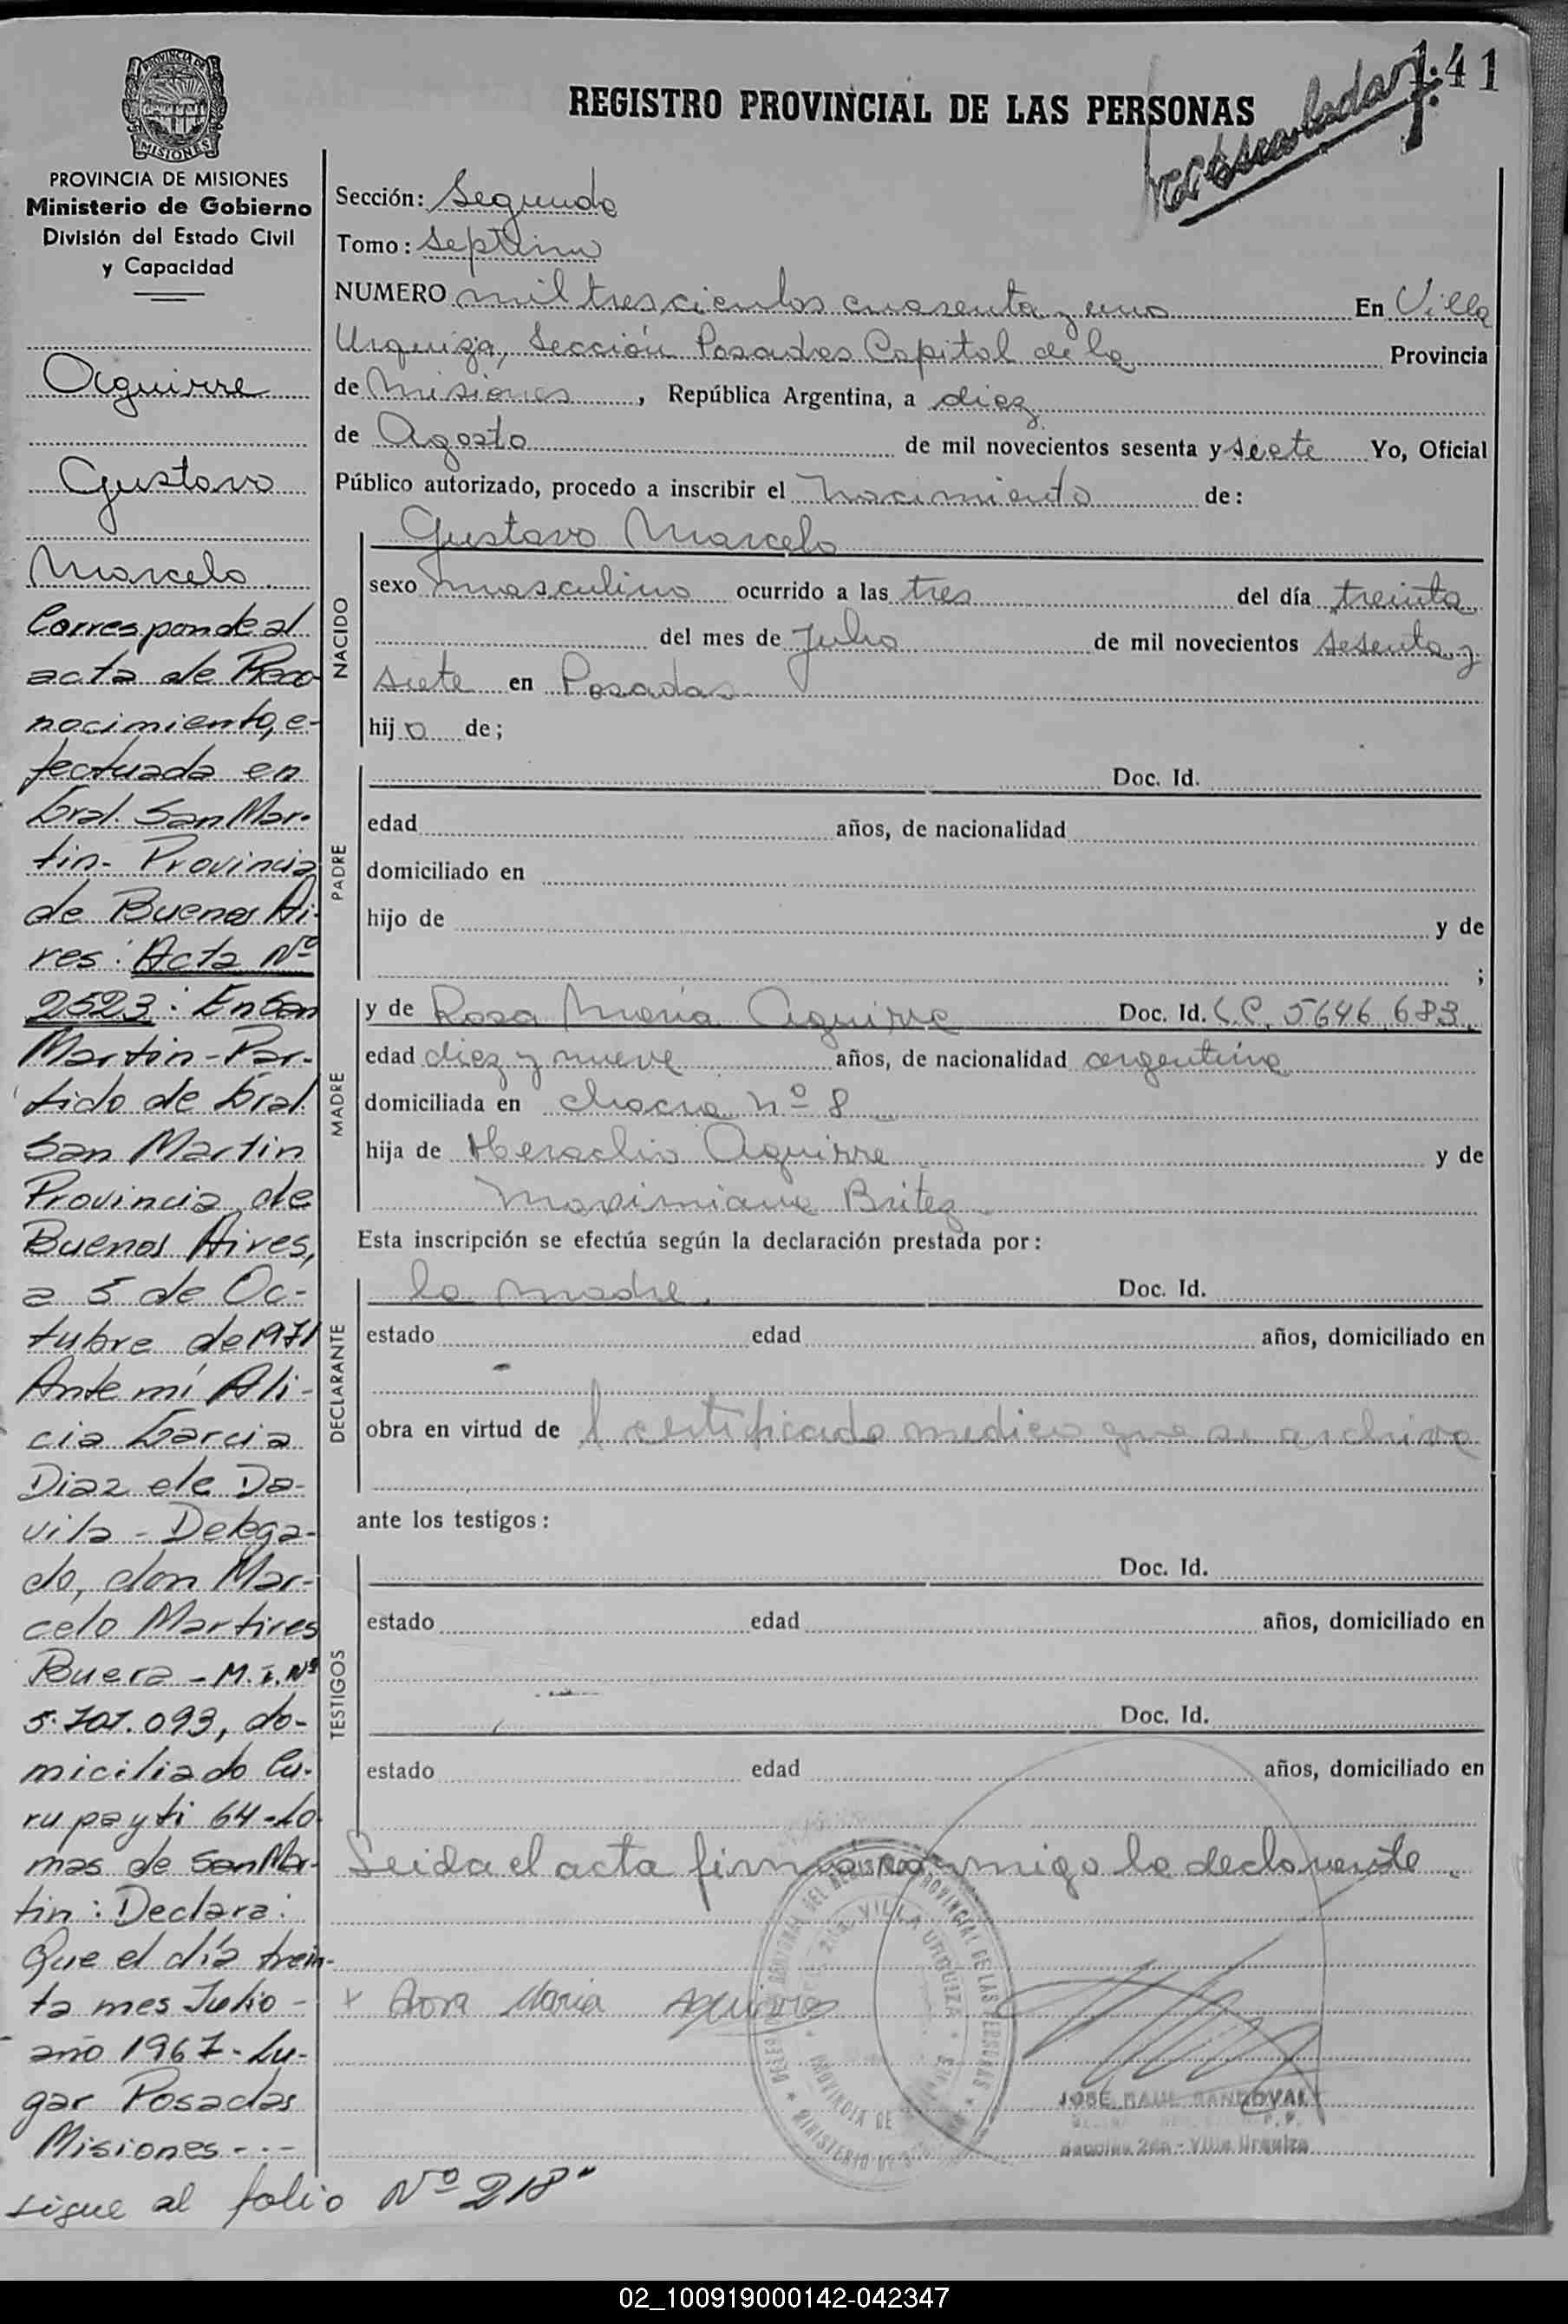 141
REGISTRO PROVINCIAL DE LAS PERSONAS
PROVINCIA DE
MISIONES
PROVINCIA DE MISIONES
Ministerio de Gobierno
División del Estado Civil
y Capacidad
Aguirre
Gustavo
Marcelo
Corresponde al
acta de Reco-
nocimiento, e-
fectuada en
Gral. San Mar-
tin - Provincia
de Buenos Ai-
res: Acta Nº
2523: En San
Martin - Par-
tido de Gral.
San Martin
Provincia de
Buenos Aires,
a 5 de Oc-
tubre de 1971
Ante mí Ali-
cia Garcia
Diaz de Da-
vila - Delega-
do, don Mar-
celo Martires
Buera - M.I. Nº
5.707.093, do-
miciliado Cu-
rupayti 64 - Lo-
mas de San Mar-
tin: Declara:
Que el día trein-
ta mes Julio -
año 1967 - Lu-
gar Posadas
Misiones - . -
sigue al folio Nº 218"
Sección: Segunda
Tomo: Septimo
NUMERO mil trescientos cuarenta y uno En Villa
Urquiza, Sección Posadas Capital de la Provincia
de Misiones, República Argentina, a diez
de Agosto de mil novecientos sesenta y siete Yo, Oficial
Público autorizado, procedo a inscribir el nacimiento de:
NACIDO
Gustavo Marcelo
sexo masculino ocurrido a las tres del día treinta
del mes de Julio de mil novecientos sesenta y
siete en Posadas
hijo de;
PADRE
Doc. Id.
edad años, de nacionalidad
domiciliado en
hijo de y de
;
MADRE
y de Rosa Maria Aguirre Doc. Id. L.C. 5646.683.
edad diez y nueve años, de nacionalidad argentina
domiciliada en chacra nº 8
hija de Heraclio Aguirre y de
Maximiana Britez
Esta inscripción se efectúa según la declaración prestada por:
DECLARANTE
la madre. Doc. Id.
estado edad años, domiciliado en
obra en virtud de l certificado medico que se archiva
ante los testigos:
TESTIGOS
Doc. Id.
estado edad años, domiciliado en
Doc. Id.
estado edad años, domiciliado en
Leida el acta firma conmigo la declarante
x Rosa Maria Aguirre
VILLA URQUIZA
PROVINCIA DE
JOSE RAUL SANDOVAL
Sección 2da - Villa Urquiza
02_100919000142-042347